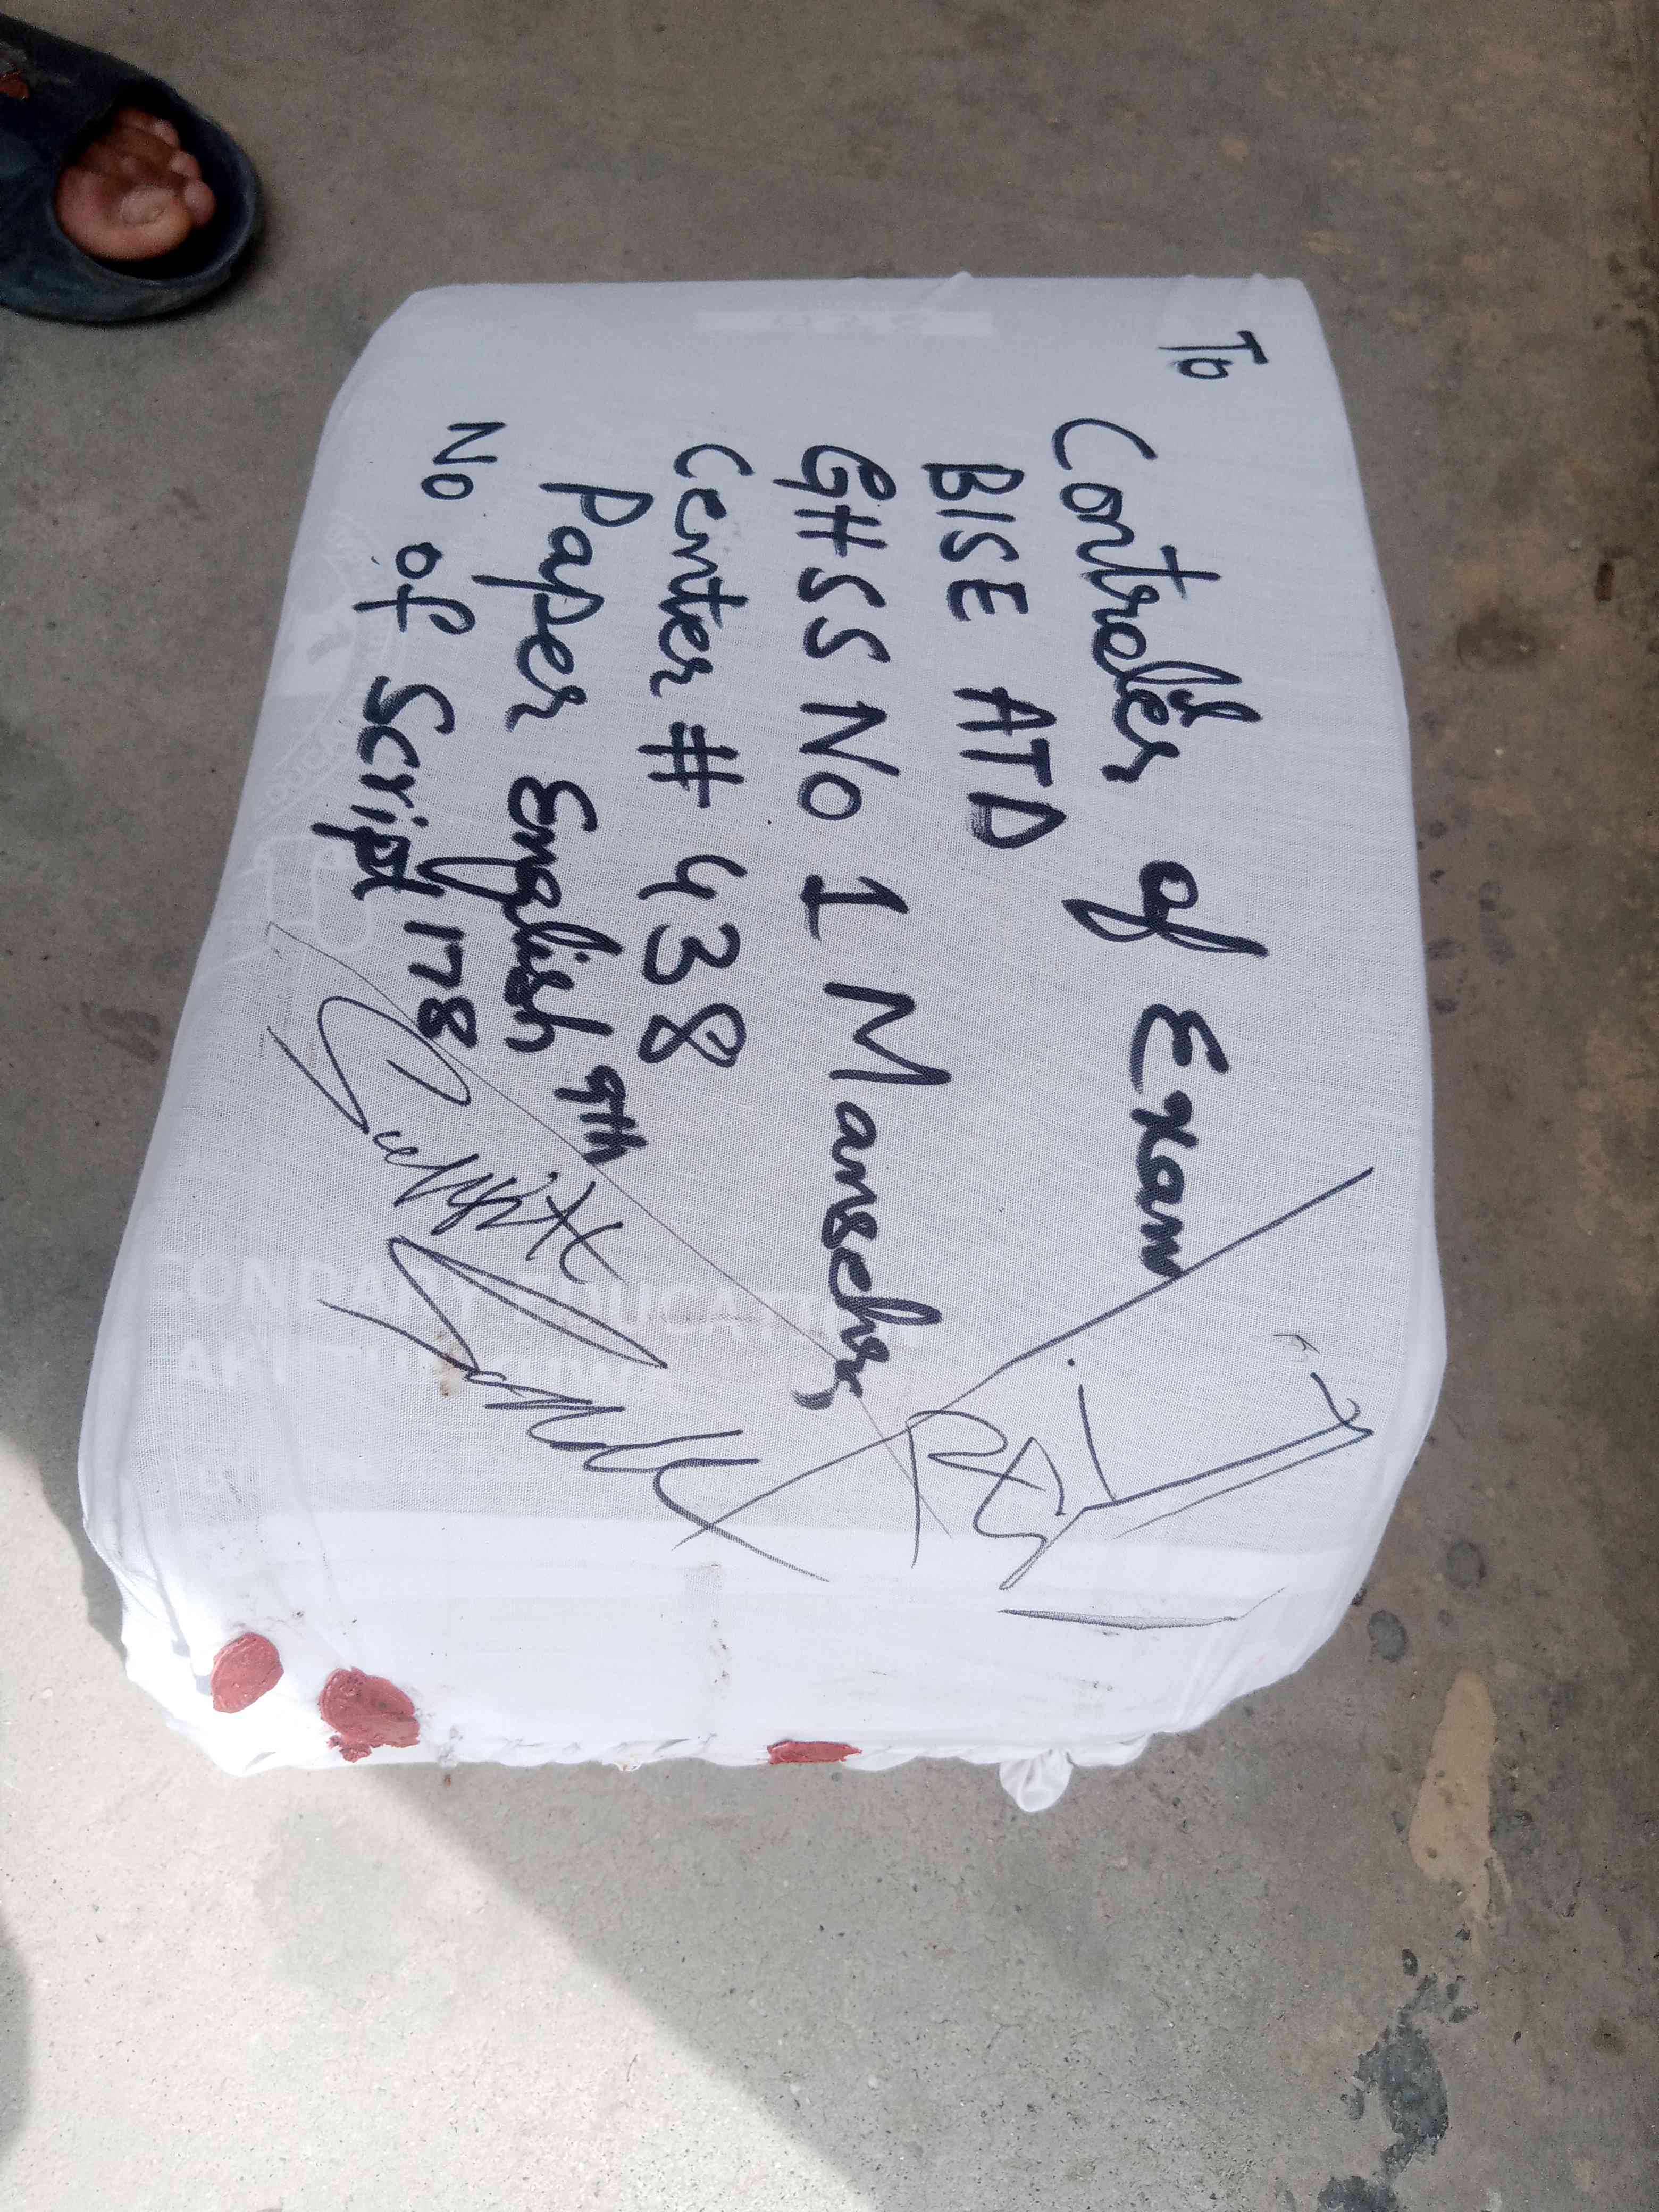 To
Controler of Exam
BISE ATD
GHSS No 1 Mansehra
Center # 438
Paper English 9th
No of Script 178